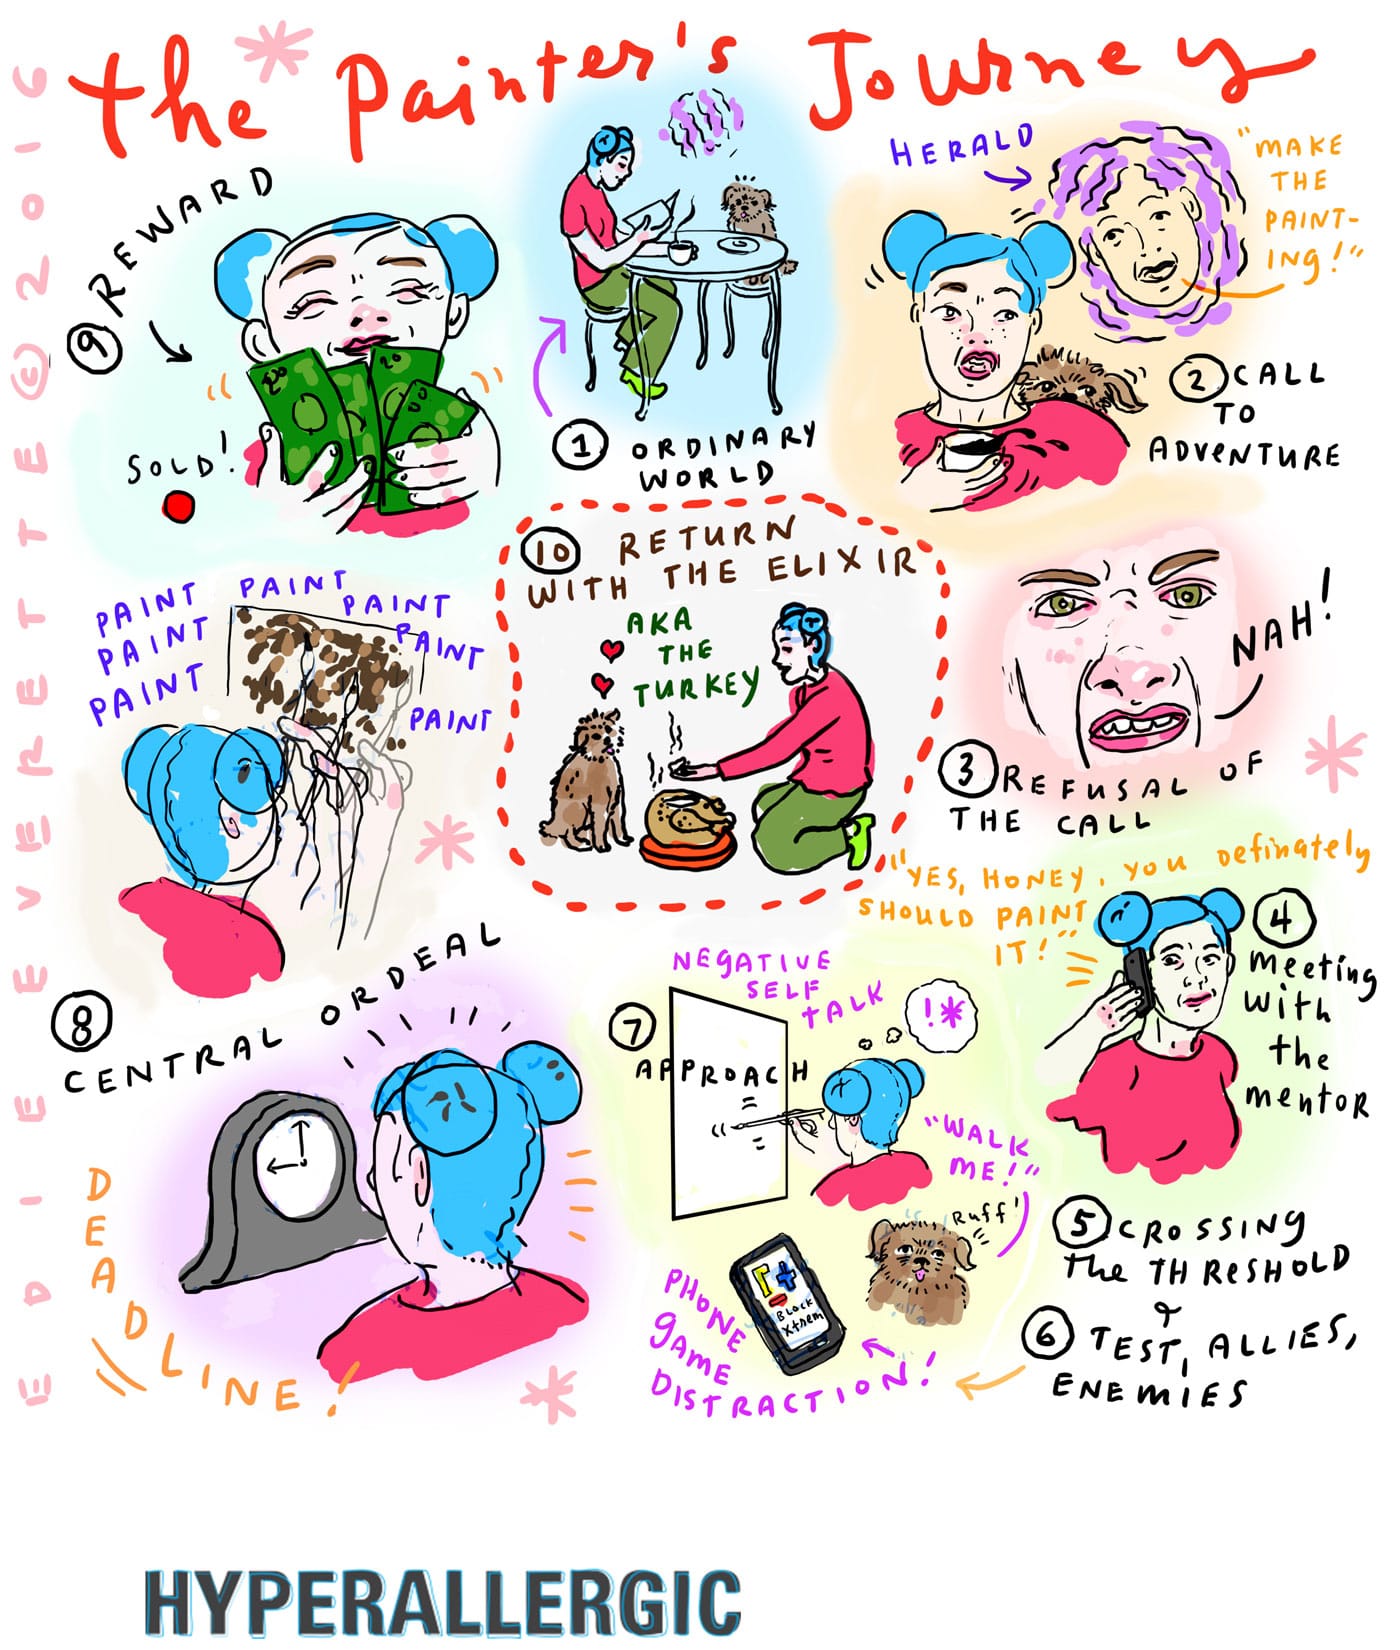 the Painter's Journey
EDIE EVERETTE © 2016
① ORDINARY
WORLD
HERALD
"MAKE
THE
PAINT-
ING!"
② CALL
TO
ADVENTURE
NAH!
③ REFUSAL OF
THE CALL
"YES, HONEY, YOU DEFINATELY
SHOULD PAINT
IT!"
④
meeting
with
the
mentor
⑤ CROSSING
the THRESHOLD
&
⑥ TEST, ALLIES,
ENEMIES
NEGATIVE
SELF
TALK
!*
⑦
APPROACH
"WALK
ME!"
Ruff!
BLOCK
Xtrem
PHONE
GAME
DISTRACTION!
⑧
CENTRAL ORDEAL
DEADLINE!
PAINT PAINT PAINT
PAINT PAINT
PAINT PAINT
⑨ REWARD
SOLD!
20
⑩ RETURN
WITH THE ELIXIR
AKA
THE
TURKEY
HYPERALLERGIC